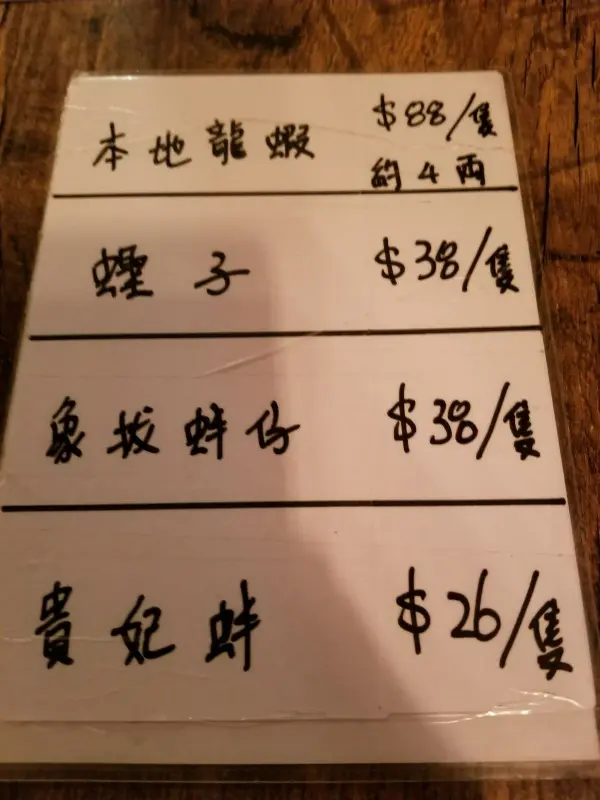 本地龍蝦 $88/隻
約4両
蟶子 $38/隻
象拔蚌仔 $38/隻
貴妃蚌 $26/隻